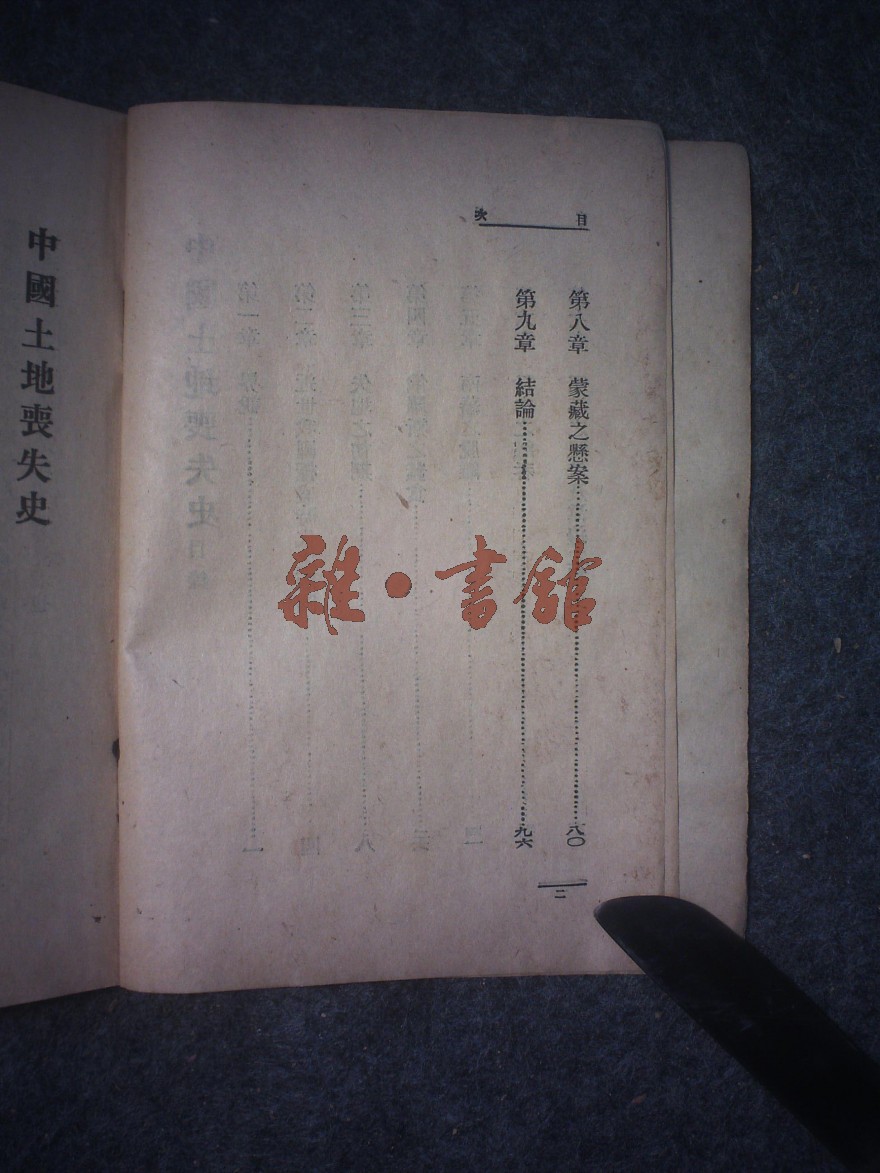 目次
第八章　蒙藏之懸案……八〇
第九章　結論……九六
二
中國土地喪失史
雜·書館